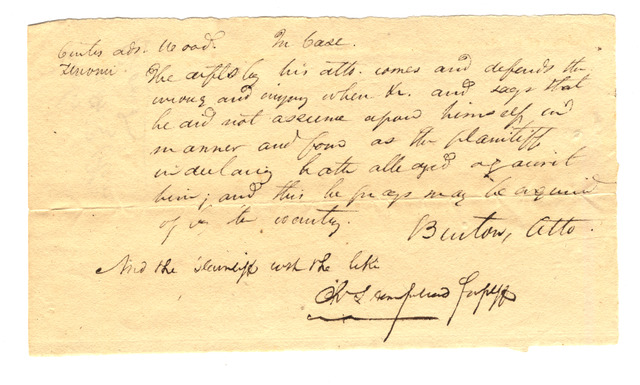 ads. Wood. In Case.
The defts by his atto. comes and defends the
wrong and injury when &c. and says that
he did not assume upon himself in
manner and form as the plaintiff
in declaring hath alledged against
him; and this he prays may be enquired
of by the country.
Burton, Atto.
And the plaintiff doth the like